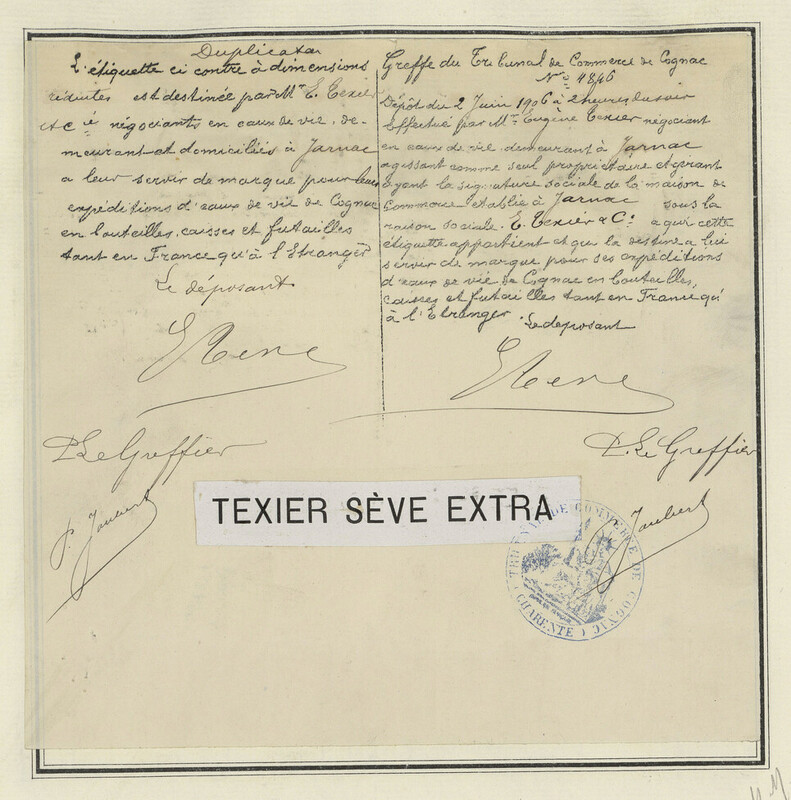 Duplicata
L'étiquette ci contre à dimensions
réduites est destinée par Mr E. Texier
et Cie négociants en eaux de vie, de-
meurant et domiciliés à Jarnac
a leur servir de marque pour leurs
expéditions d'eaux de vie de Cognac
en bouteilles, caisses et futailles
tant en France qu'à l'Etranger
Le déposant
P. Le Greffier
P. Jaubert
Greffe du Tribunal de Commerce de Cognac
No 4846
Dépôt du 2 Juin 1906 à 2 heures du soir
Effectué par Mr Eugène Texier négociant
en eaux de vie demeurant à Jarnac
agissant comme seul propriétaire et gérant
ayant la signature sociale de la maison de
Commerce établie à Jarnac sous la
raison sociale. E. Texier & Co a qui cette
étiquette appartient et qui la destine a lui
servir de marque pour ses expéditions
d'eaux de vie de Cognac en bouteilles,
caisses et futailles tant en France qu'
à l'Etranger. Le déposant
P. Le Greffier
Jaubert
TEXIER SÈVE EXTRA
TRIBUNAL DE COMMERCE DE COGNAC
(CHARENTE)